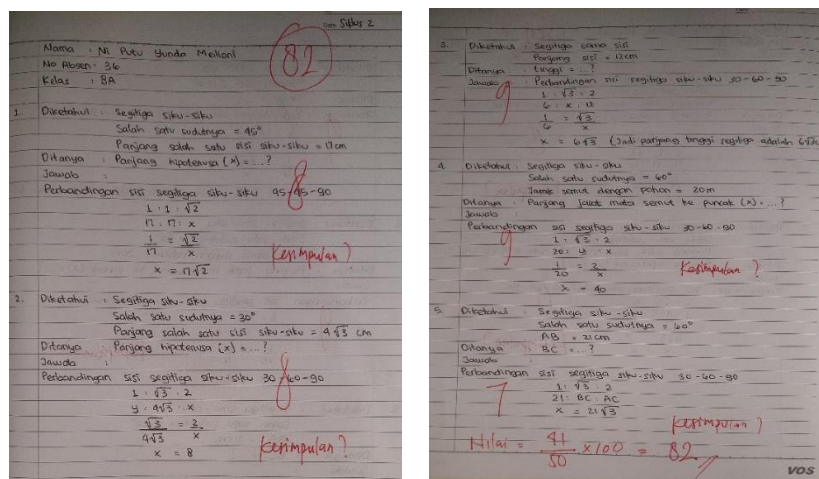 Siklus 2
Nama : Ni Putu Yunda Meiliani
82
No Absen : 36
Kelas : 8A
1. Diketahui : Segitiga siku-siku
Salah satu sudutnya = 45°
Panjang salah satu sisi siku-siku = 17 cm
Ditanya : Panjang hipotenusa (x) = ...?
Jawab :
8
Perbandingan sisi segitiga siku-siku 45-45-90
1 : 1 : √2
17 : 17 : x
1/17 = √2/x
Kesimpulan?
x = 17√2
2. Diketahui : Segitiga siku-siku
Salah satu sudutnya = 30°
Panjang salah satu sisi siku-siku = 4√3 cm
Ditanya : Panjang hipotenusa (x) = ...?
Jawab :
8
Perbandingan sisi segitiga siku-siku 30-60-90
1 : √3 : 2
y : 4√3 : x
√3/4√3 = 2/x
Kesimpulan?
x = 8
3. Diketahui : Segitiga sama sisi
Panjang sisi = 12cm
Ditanya : tinggi = ...?
Jawab : Perbandingan sisi segitiga siku-siku 30-60-90
9
1 : √3 : 2
6 : x : 12
1/6 = √3/x
x = 6√3 (Jadi panjang tinggi segitiga adalah 6√3
4. Diketahui : Segitiga siku-siku
Salah satu sudutnya = 60°
Jarak semut dengan pohon = 20m
Ditanya : Panjang jarak mata semut ke puncak (x) = ...?
Jawab :
Perbandingan sisi segitiga siku-siku 30-60-90
9
1 : √3 : 2
20 : y : x
1/20 = 2/x
Kesimpulan?
x = 40
5. Diketahui : Segitiga siku-siku
Salah satu sudutnya = 60°
AB = 21cm
Ditanya : BC = ...?
Jawab
Perbandingan sisi segitiga siku-siku 30-60-90
7
1 : √3 : 2
21 : BC : AC
x = 21√3
Kesimpulan?
Nilai = 41/50 x100 = 82
VOS